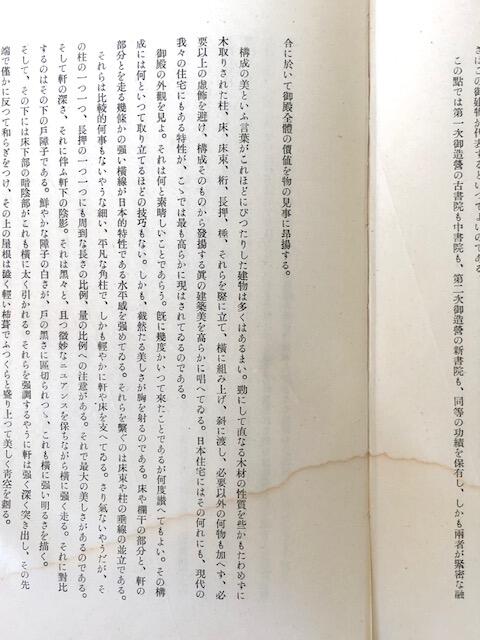 きは、この御殿が代表するといつてよいのである
この點では第一次御造營の古書院も中書院も、第二次御造營の新書院も、同等の功績を保有し、しかも兩者が緊密な融
合に於いて御殿全體の價値を物の見事に昂揚する。
構成の美といふ言葉がこれほどにぴつたりした建物は多くはあるまい。勁にして直なる木材の性質を些かもたわめずに
木取りされた柱、床、床束、桁、長押、棰、それらを竪に立て、橫に組み上げ、斜に渡し、必要以外の何物も加へず、必
要以上の虛飾を避け、構成そのものから發揚する眞の建築美を高らかに唱へてゐる。日本住宅にはその何れにも、現代の
我々の住宅にもある特性が、こゝでは最も高らかに現はされてゐるのである。
御殿の外觀を見よ。それは何と素晴しいことであらう。旣に幾度かいつて來たことであるが何度讃へてもよい。その構
成には何といつて取り立てるほどの技巧もない。しかも、截然たる美しさが胸を射るのである。床や欄干の部分と、軒の
部分とを走る幾條かの強い橫線が日本的特性である水平感を強めてゐる。それらを繫ぐのは床束や柱の垂線の並立である。
それらは比較的何事もないやうな細い、平凡な角柱で、しかも輕やかに軒や床を支へてゐる。さり氣ないやうだが、そ
の柱の一つ一つ、長押の一つ一つにも周到な長さの比例、量の比例への注意がある。それで最大の美しさがあるのである。
そして軒の深さ、それに伴ふ軒下の陰影。それは黑々と、且つ微妙なニュアンスを保ちながら橫に強く走る。それに對比
するのはその下の戶障子である。鮮やかな障子の白さが、戶の黑さに區切られつゝ、これも橫に強い明るさを描く。
そして、その下には床下部の暗陰部がこれも橫に太く引かれる。それらを強調するやうに軒は強く深く突き出し、その先
端で僅かに反つて和らぎをつけ、その上の屋根は謐く輕い杮葺でふつくらと盛り上つて美しく靑空を劃る。